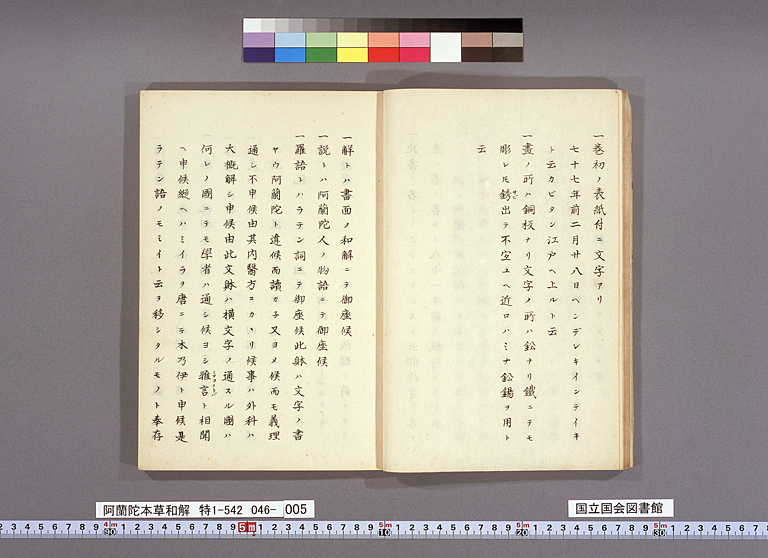 一巻初ノ表紙付ニ文字アリ
七十七年前二月廿八日ヘンデレキインテイキ
ト云カピタン江戸ヘ上ルト云
一畫ノ所ハ銅板ナリ文字ノ所ハ鉛ナリ鐵ニテモ
彫レモ銹出テ不宜ユヘ近ロハミナ鉛錫ヲ用ト
云
一解トハ書面ノ和解ニテ御座候
一説トハ阿蘭陀人ノ物語ニテ御座候
一羅語トハラテン詞ニテ御座候此躰ハ文字ノ書
ヤウ阿蘭陀ト違候而讀カ子又ヨメ候而モ義理
通シ不申候由其内醫方ニカヽリ候事ハ外科ハ
大概解シ申候由此文躰ハ横文字ノ通スル國ハ
何レノ國ニテモ學者ハ通シ候ヨシ雅言ト相聞
ヘ申候縦ヘハミイラヲ唐ニテ木乃伊ト申候是
ラテン語ノモミイト云ヲ移シタルモノト奉存
阿蘭陀本草和解 特1-542 046- 005
国立国会図書館